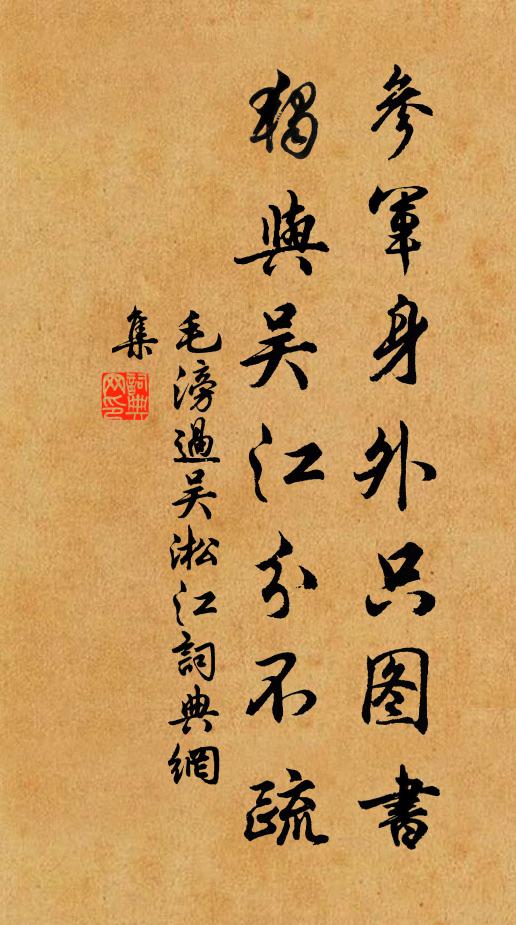 參軍身外只图書
獨與吴江分不疏
毛滂過吴淞江詞典網
集
詞典網印